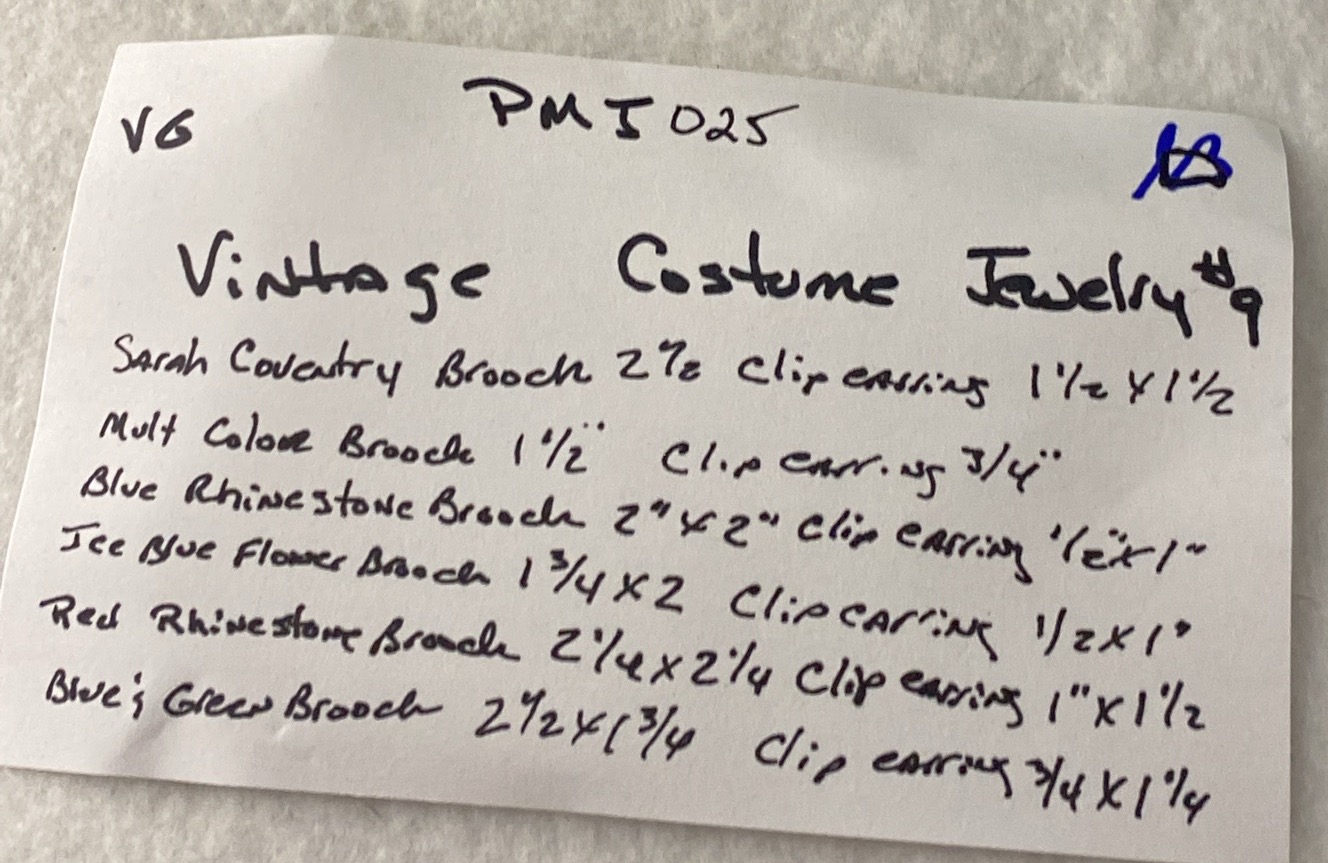 VG PMJ025
Vintage Costume Jewelry #9
Sarah Coventry Brooch 2 1/2 Clip earring 1 1/2 X 1 1/2
Mult Color Brooch 1 1/2" Clip earring 3/4"
Blue Rhinestone Brooch 2" X 2" Clip earring 1/2" X 1"
Ice Blue Flower Brooch 1 3/4 X 2 Clip earring 1/2 X 1"
Red Rhinestone Brooch 2 1/4 X 2 1/4 Clip earring 1" X 1 1/2
Blue & Green Brooch 2 1/2 X 1 3/4 Clip earring 3/4 X 1 1/4